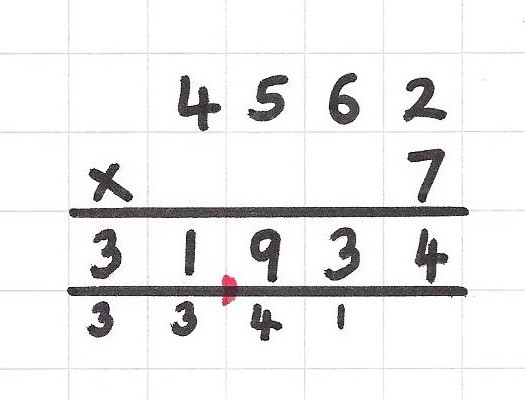 4562
× 7
31934
3 3 4 1